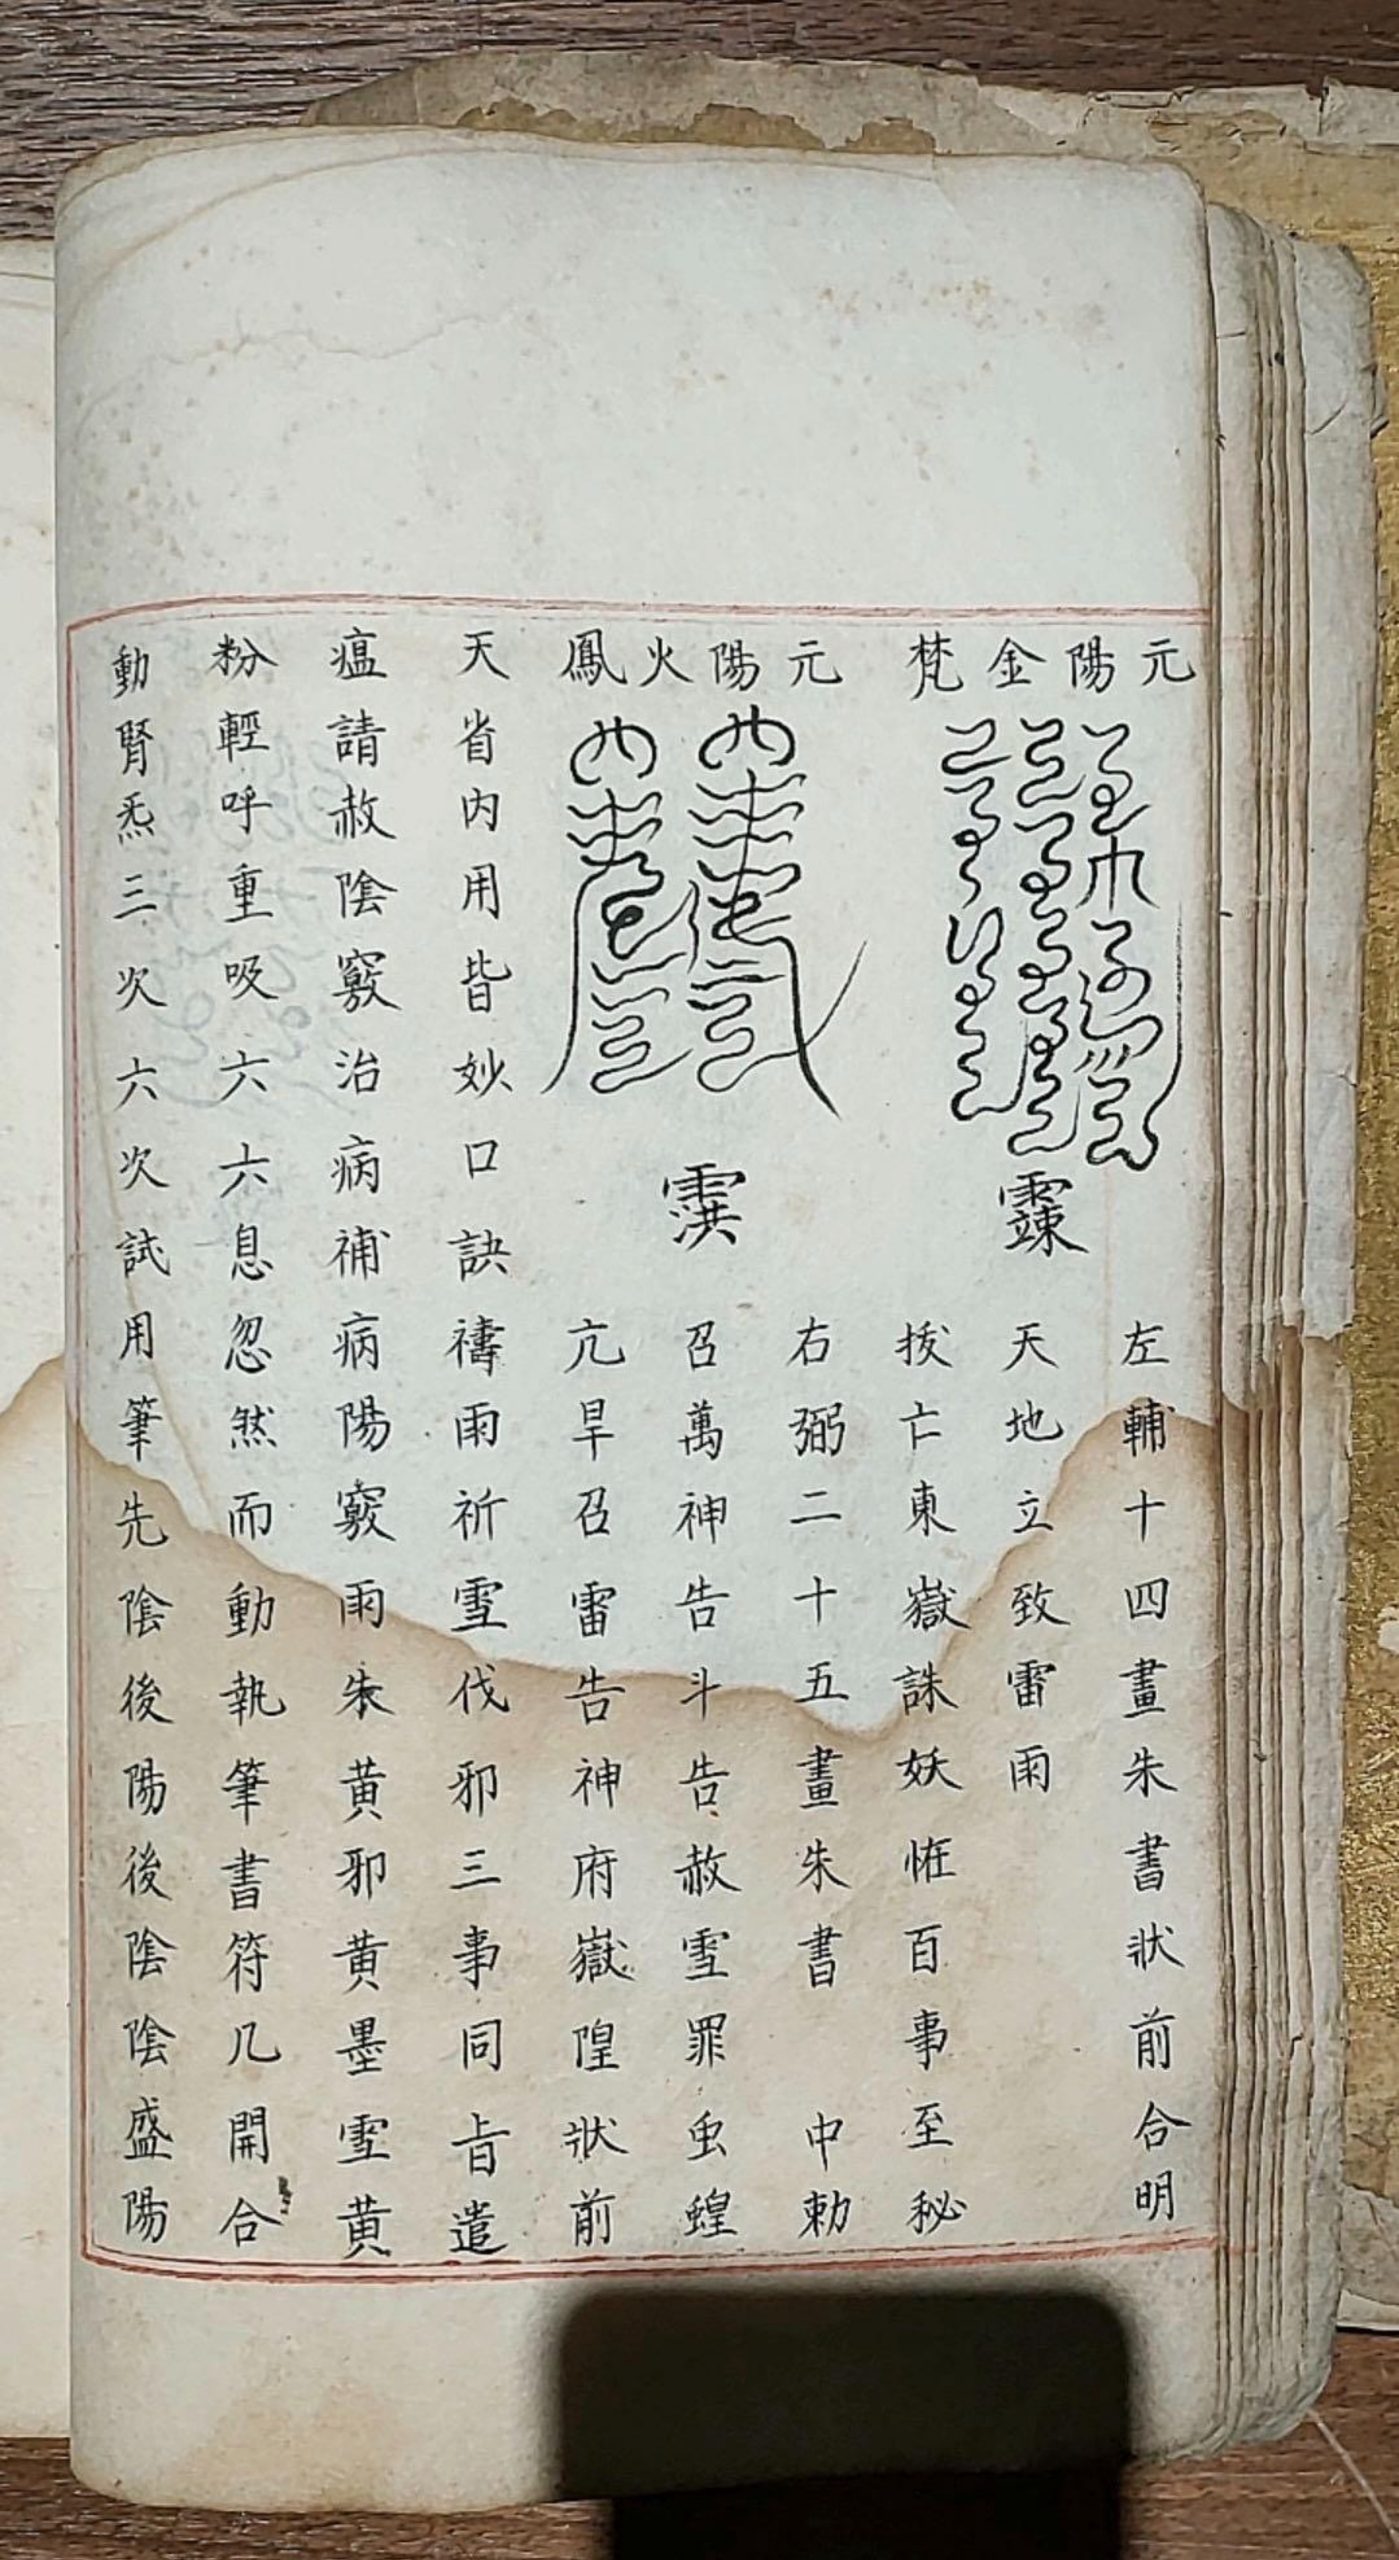 元陽金梵
左輔十四畫朱書狀前合明
天地立致雷雨
拔亡東嶽誅妖恠百事至秘
元陽火鳳
右弼二十五畫朱書 中勅
召萬神告斗告赦雪罪虫蝗
亢旱召雷告神府嶽隍狀前
天省內用皆妙口訣禱雨祈雪伐邪三事同旨遣
瘟請赦陰竅治病補病陽竅雨朱黃邪黃墨雪黃
粉輕呼重吸六六息忽然而動執筆書符几開合
動腎炁三次六次試用筆先陰後陽後陰陰盛陽